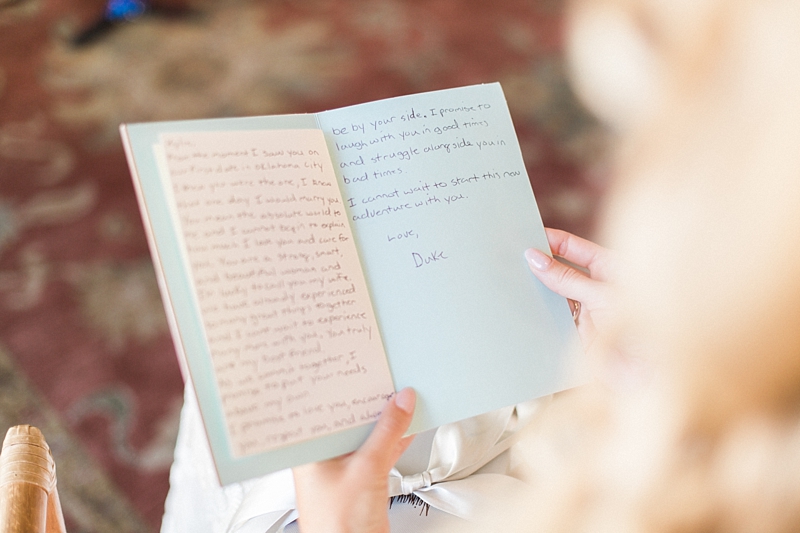 From the moment I saw you on
our first date in Oklahoma City
I knew you were the one, I knew
that one day I would marry you.
You mean the absolute world to
me and I cannot begin to explain
how much I love you and care for
you. You are a strong, smart,
and beautiful woman and
I'm lucky to call you my wife.
We have already experienced
many great things together
and I can't wait to experience
many more with you. You truly
are my best friend.
As we women together, I
promise to put your needs
above my own.
I promise to love you, encourage
you, respect you, and
be by your side. I promise to
laugh with you in good times
and struggle alongside you in
bad times.
I cannot wait to start this new
adventure with you.
Love,
Duke